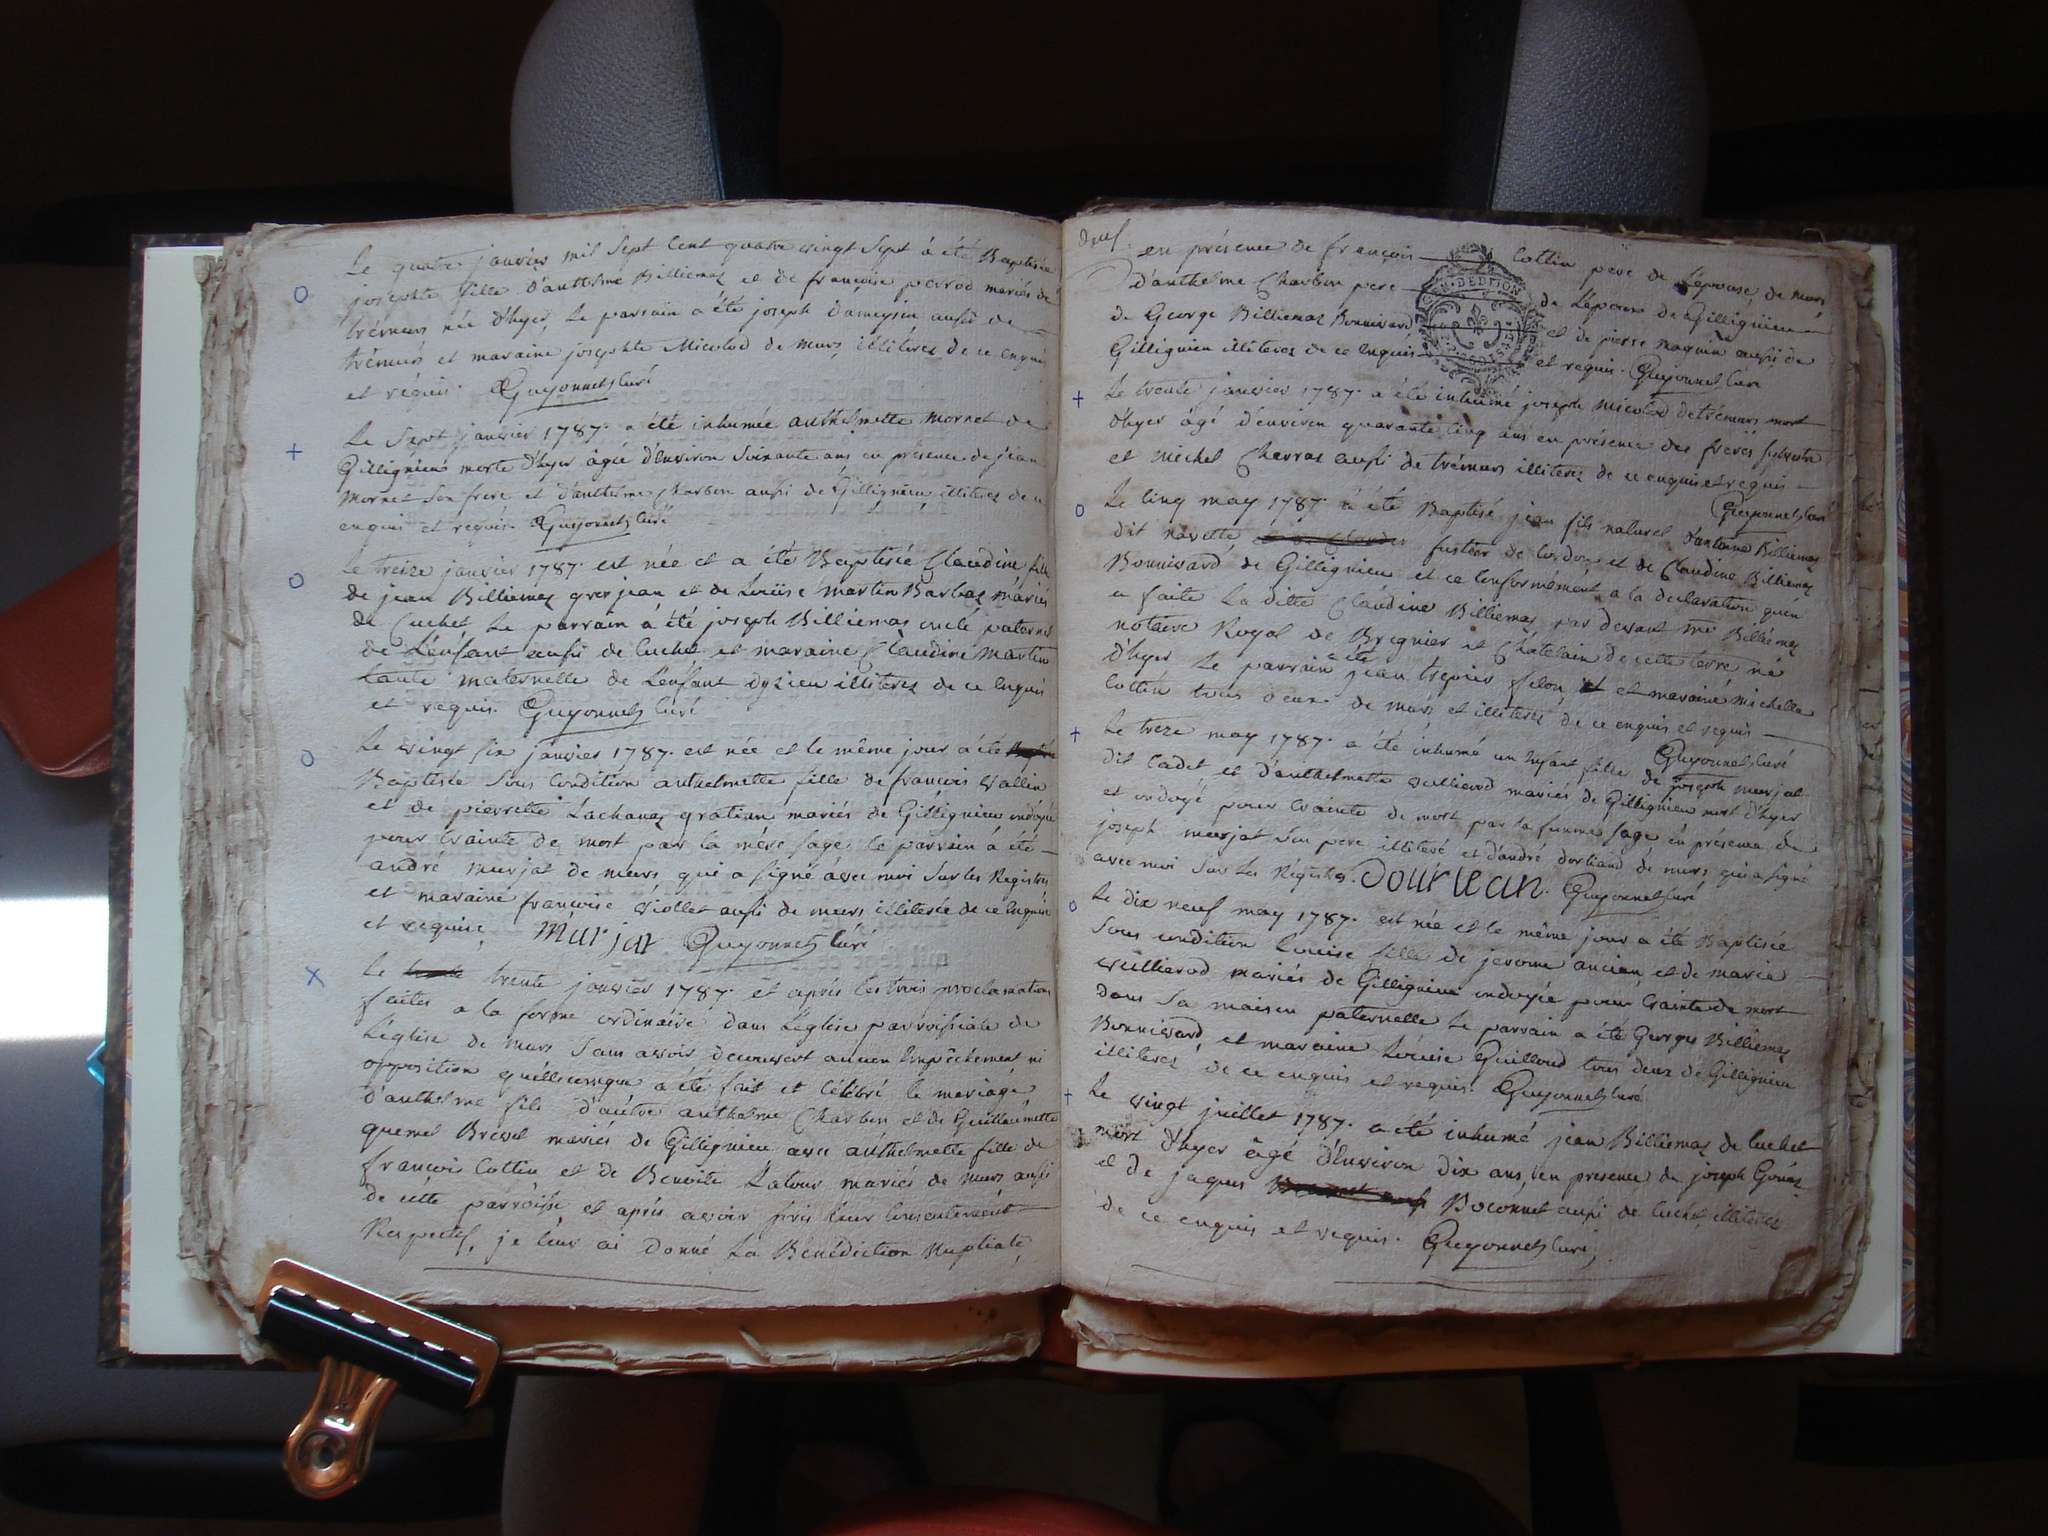 Le quatre janvier mil sept cent quatre vingt sept à été Baptisée
josephte fille d'anthelme Billiemaz et de françoise perrod mariés de
trémurs née d'hyer, Le parrain a été joseph Dameysin aussi de
trémurs et maraine josephte Micolod de murs, illiterés de ce enquis
et réquis. Guyonnet curé
Le Sept janvier 1787. a été inhumée anthelmette Mornet de
Gillignieu morte d'hyer âgée d'environ Soixante ans en présence de jean
Mornet Son frere et d'anthelme Charbon aussi de Gillignieu, illiteres de ce
enquis et requis. Guyonnet curé
Le treize janvier 1787. est née et a été Baptisée Claudine fille
de jean Billiemaz grosjean et de Louise Martin Barbaz mariés
de Cuchet Le parrain à été joseph Billiemaz oncle paternel
de L'enfant aussi de Cuchet et maraine Claudine Martin
tante maternelle de L'enfant dyzieu illiterez de ce Enquis
et requis. Guyonnet curé
Le vingt six janvier 1787. est née et le même jour a été
Baptisée Sous Condition anthelmette fille de francois vallin
et de pierrette Lachanaz gratian mariés de Gillignieu ondoyée
pour Crainte de mort par la mére sage, le parrain à été
andré murjat de murs, qui a signé avec moi Sur les Registres
et maraine francoise viollet aussi de murs illiterée de ce Enquise
et requise, Murjat Guyonnet Curé
Le trente janvier 1787. et après les trois proclamations
faites a la forme ordinaire dans L'église parroissiale de
L'église de murs Sans avoir decouvert aucun Empêchement ni
opposition quelleconque a été fait et Célébré le mariage
d'anthelme fils d'autre anthelme Charbon et de Guillaumette
quemet Brevet mariés de Gillignieu avec anthelmette fille de
francois Cottin et de Benoite Latour mariés de Murs aussi
de cette parroisse, et aprés avoir pris leur Consentement
Respectif, je leur ai Donné La Bénédiction Nuptiale,
Deux.
en présence de françois Cottin pere de L'épouse, de murs
d'anthelme Charbon pere de L'époux de Gillignieu
de George Billiemaz Bonnivard et de pierre naquin aussi de
GEN. DEDIJON
Gillignieu illiterez de ce Enquis et requis. Guyonnet Curé
Le trente janvier 1787. a été inhumé joseph Micolod de trémurs mort
d'hyer âgé d'environ quarante Cinq ans en présence des freres Sylvestre
et Michel Charvaz aussi de trémurs illiteres de ce enquis et requis
Guyonnet Curé
Le Cinq may 1787. à été Baptisé jean fils naturel d'antoine Billiemaz
dit navette fustier de Cordon et de Claudine Billiemaz
Bonnivard de Gillignieu et ce Conformément a la declaration qu'en
a faite La ditte Claudine Billiemaz par devant Me Billiemaz
notaire Royal de Bregnier et Châtelain de cette terre né
d'hyer Le parrain a été jean trepier filon, et maraine michelle
Cottin tous deux de murs et illiteres de ce enquis et requis
Guyonnet Curé
Le treze may 1787. a été inhumé un Enfant fille de joseph murjat
dit Cadet et d'anthelmette vullierod mariés de Gillignieu mort d'hyer
et ondoyé pour Crainte de mort par la femme sage en présence de
joseph murjat Son pere illiteré et d'andré dorliand de murs qui a signé
avec moi Sur les Régistres. Dourliean. Guyonnet curé
Le dix neuf may 1787. est née et le même jour a été Baptisée
Sous condition Louise fille de jerome ancian et de marie
vullierod mariés de Gillignieu ondoyée pour Crainte de mort
dans Sa maison paternelle Le parrain a été Georges Billiemaz
Bonnivard, et maraine Louise Guilloud tous deux de Gillignieu
illiterés de ce enquis et requis. Guyonnet Curé
Le vingt juillet 1787. a été inhumé jean Billiemaz de Cuchet
mort d'hyer âgé d'Environ dix ans, en presence de joseph Gonez
et de jaques Boconnet aussi de Cuchet, illiterés
de ce enquis et requis. Guyonnet curé,